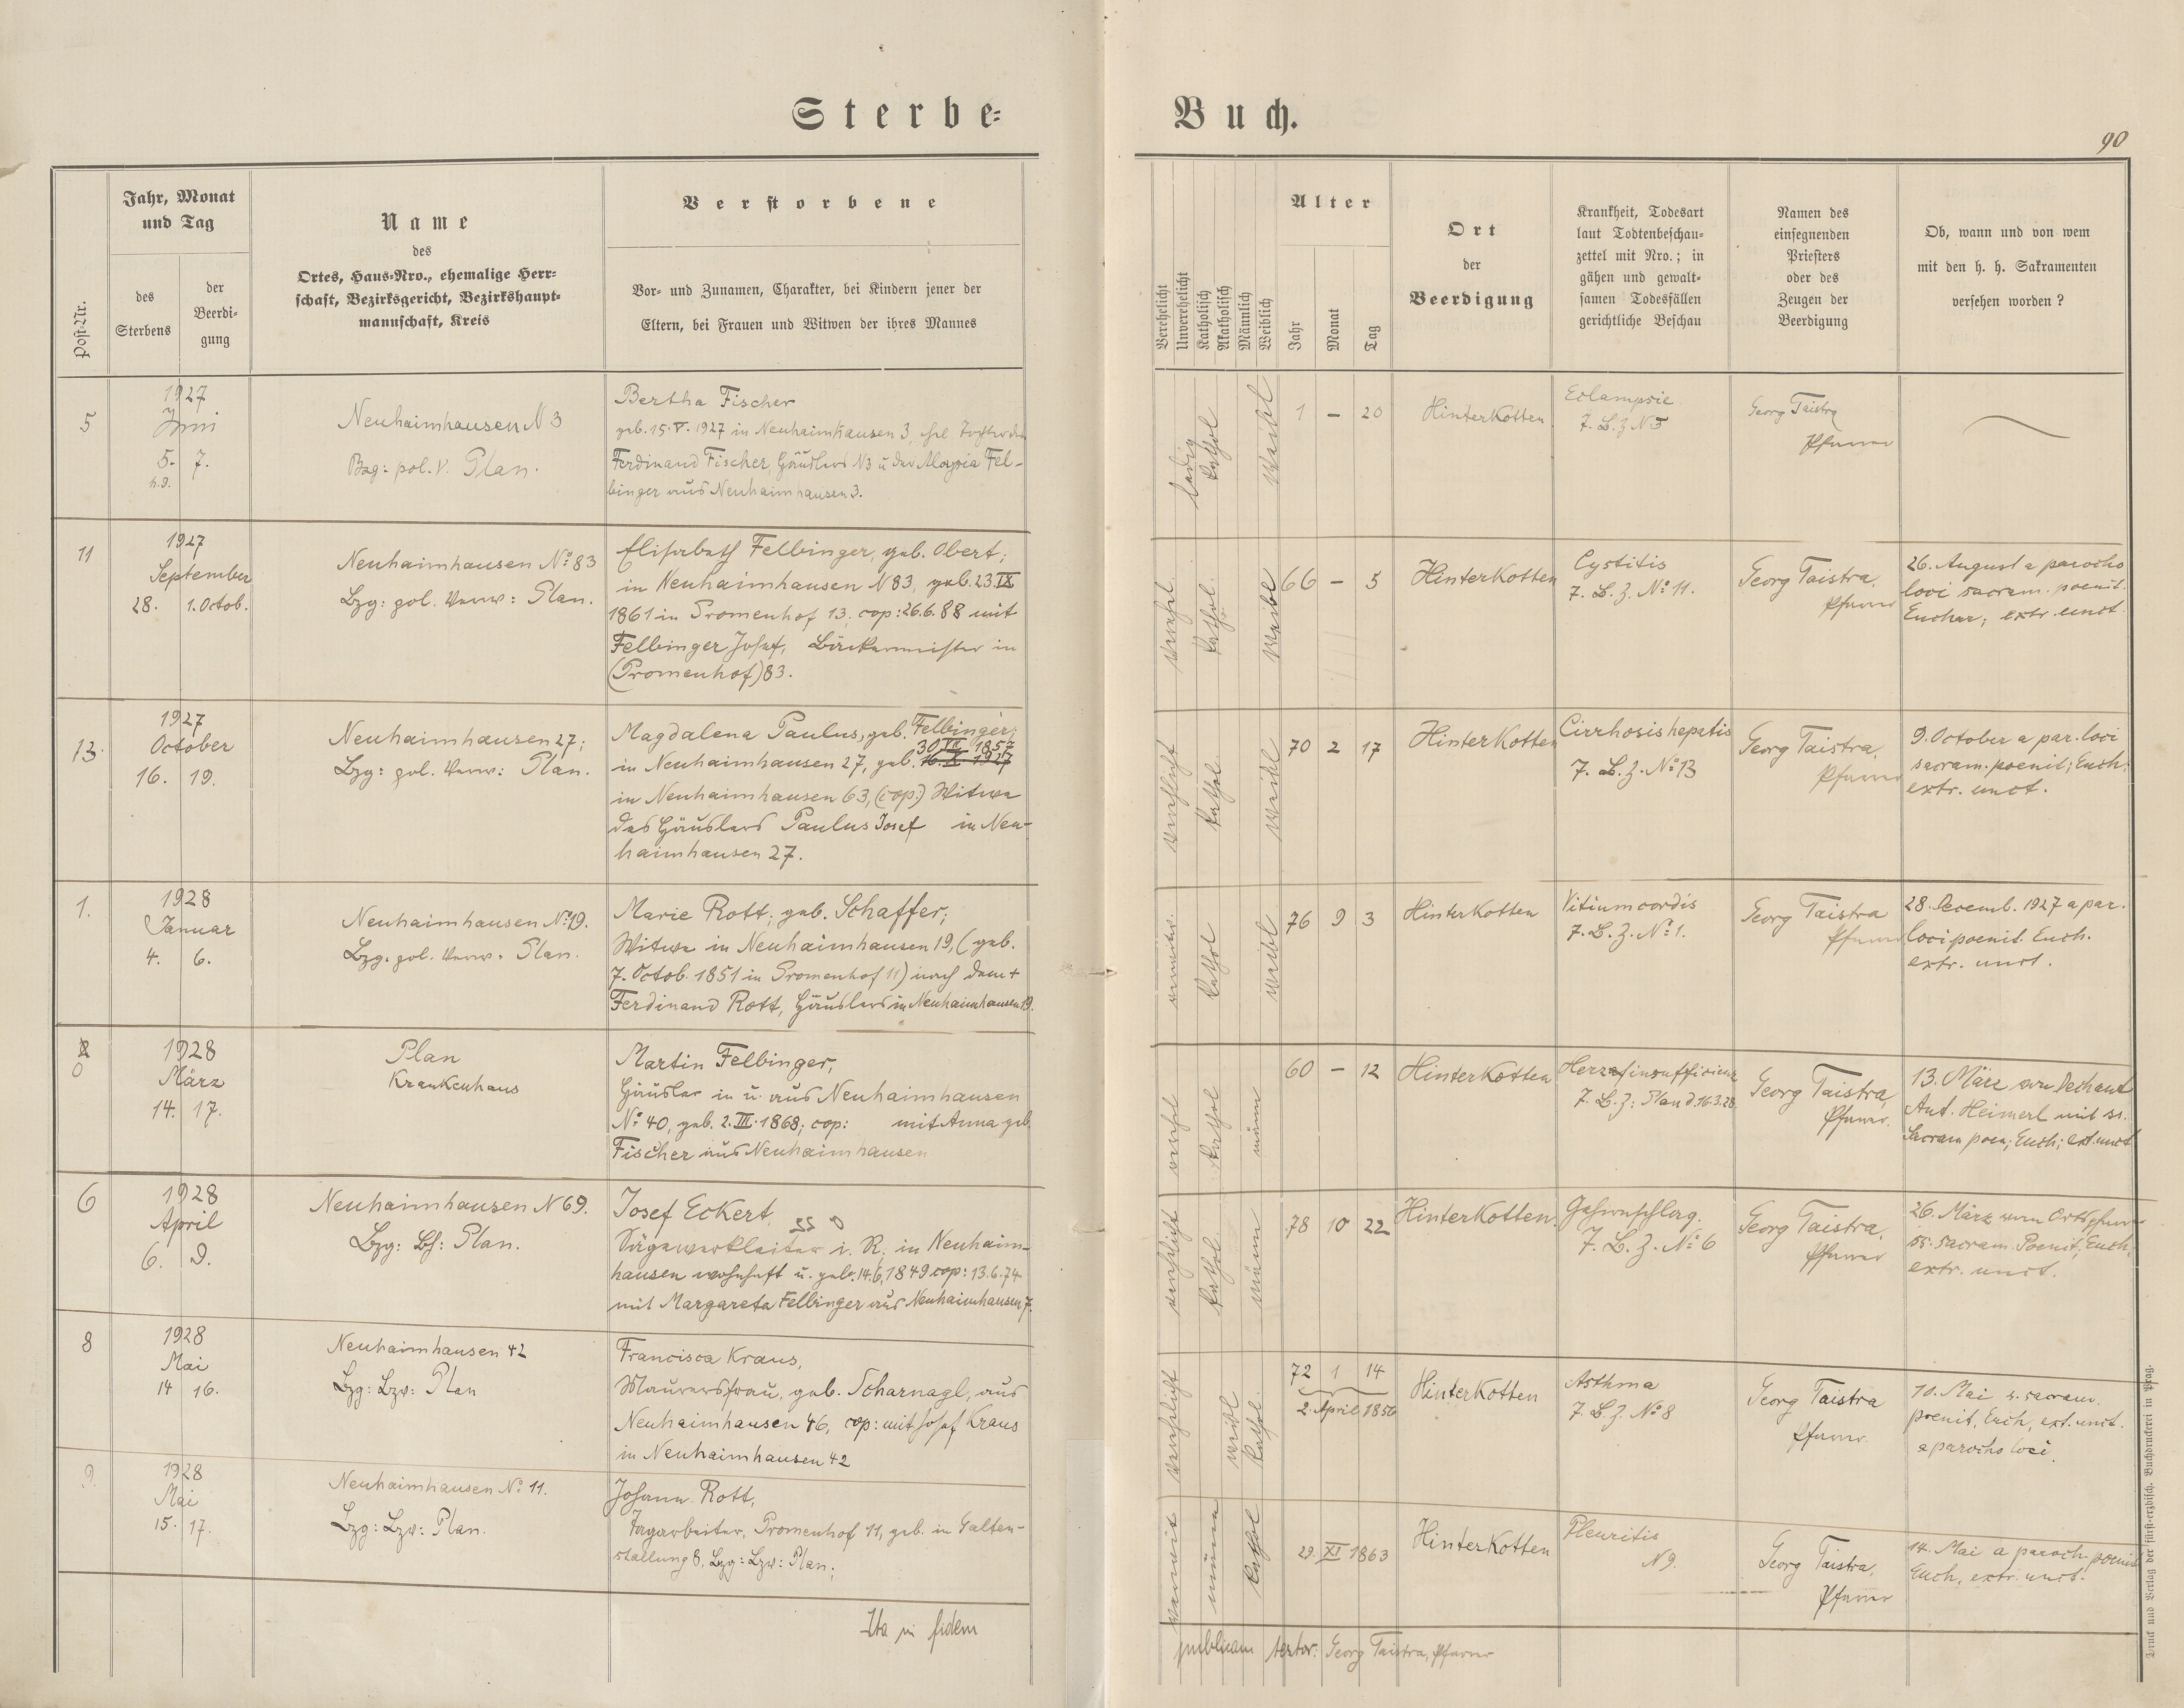 Sterbe=
Buch.
90
Post-Nr.
Jahr, Monat
und Tag
des
Sterbens
der
Beerdi-
gung
Name
des
Ortes, Haus-Nro., ehemalige Herr-
schaft, Bezirksgericht, Bezirkshaupt-
mannschaft, Kreis
Verstorbene
Vor- und Zunamen, Charakter, bei Kindern jener der
Eltern, bei Frauen und Witwen der ihres Mannes
Verehelicht
Unverehelicht
Katholisch
Akatholisch
Männlich
Weiblich
Alter
Jahr
Monat
Tag
Ort
der
Beerdigung
Krankheit, Todesart
laut Todtenbeschau-
zettel mit Nro.; in
gähen und gewalt-
samen Todesfällen
gerichtliche Beschau
Namen des
einsegnenden
Priesters
oder des
Zeugen der
Beerdigung
Ob, wann und von wem
mit den h. h. Sakramenten
versehen worden?
5
1927
Juni
5. 7.
Neuhaimhausen N 3
Bzg: pol. V. Plan.
Bertha Fischer
geb. 15. V. 1927 in Neuhaimhausen 3, ehel Tochter des
Ferdinand Fischer, Häuslers N3 u der Aloysia Fel-
binger aus Neuhaimhausen 3.
ledig
kathol
weibl
1 – 20
Hinterkotten
Eclampsie
T. B. Z N 5
Georg Taistra
Pfarrer
11
1927
September
28. 1. Octob.
Neuhaimhausen No 83
Bzg: pol. Verw: Plan.
Elisabeth Felbinger, geb. Obert;
in Neuhaimhausen N 83, geb. 23 IX
1861 in Promenhof 13; cop: 26.6.88 mit
Felbinger Josef, Bäckermeister in
(Promenhof) 83.
verehel
kathol.
66 – 5
Hinterkotten
Cystitis
T. B. Z. No 11.
Georg Taistra,
Pfarrer
26. August a parocho
loci sacram. poenit.
Euchar; extr. unct.
13.
1927
October
16. 19.
Neuhaimhausen 27;
Bzg: pol. Verw: Plan.
Magdalena Paulus, geb. Felbinger;
30 VII 1857
in Neuhaimhausen 27, geb. 16. X. 1927
in Neuhaimhausen 63, (cop:) Witwe
des Häuslers Paulus Josef in Neu-
haimhausen 27.
verehlicht
kathol
weibl
70 2 17
Hinterkotten
Cirrhosis hepatis
T. B. Z. No 13
Georg Taistra,
Pfarrer
9. October a par. loci
sacram. poenit; Euch;
extr. unct.
1.
1928
Januar
4. 6.
Neuhaimhausen No 19.
Bzg. pol. Verw. Plan.
Marie Rott, geb. Schaffer;
Witwe in Neuhaimhausen 19, (geb.
7. Octob. 1851 in Promenhof 11) nach dem +
Ferdinand Rott, Häuslers in Neuhaimhausen 19.
verwitw.
kathol
weibl
76 9 3
Hinterkotten
Vitium cordis
T. B. Z. No 1.
Georg Taistra
Pfarrer
28. Decemb. 1927 a par.
loci poenit. Euch.
extr. unct.
0
1928
März
14. 17.
Plan
Krankenhaus
Martin Felbinger,
Häusler in u. aus Neuhaimhausen
No 40, geb. 2. III. 1868; cop: mit Anna geb.
Fischer aus Neuhaimhausen
verehel
kathol
männ
60 – 12
Hinterkotten
Herzinsufficienz
T. B. Z: Plan d. 16.3.28.
Georg Taistra,
Pfarrer.
13. März von Dechant
Ant. Heimerl mit ss.
Sacram poen; Euch; ext. unct
6
1928
April
6. 9.
Neuhaimhausen N 69.
Bzg: Bh: Plan.
Josef Eckert,
Sägewerkleiter i. R; in Neuhaim-
hausen wohnhaft u. geb. 14.6.1849 cop: 13.6.74
mit Margareta Felbinger aus Neuhaimhausen 7.
verehelicht
kathol.
männ
78 10 22
Hinterkotten.
Gehirnschlag.
T. B. Z. No 6
Georg Taistra,
Pfarrer
26. März vom Ortspfarrer
ss. sacram. Poenit, Euch;
extr. unct.
8
1928
Mai
14 16.
Neuhaimhausen 42
Bzg: Bzv: Plan
Francisca Kraus,
Maurersfrau, geb. Scharnagl, aus
Neuhaimhausen 46, cop: mit Josef Kraus
in Neuhaimhausen 42
verehelicht
weibl
kathol.
72 1 14
2. April 1856
Hinterkotten
Asthma
T. B. Z. No 8
Georg Taistra
Pfarrer.
10. Mai s. sacram.
poenit, Euch, ext. unct.
a parocho loci.
9.
1928
Mai
15. 17.
Neuhaimhausen No 11.
Bzg: Bzv: Plan.
Johann Rott,
Tagarbeiter, Promenhof 11, geb. in Galten-
stallung 8, Bzg: Bzv: Plan;
verwit
männ
kathol
29. XI 1863
Hinterkotten
Pleuritis
N 9.
Georg Taistra,
Pfarrer
14. Mai a paroch. poenit
Euch, extr. unct.
Ita in fidem
publicam testor: Georg Taistra, Pfarrer
Druck und Verlag der fürst-erzbisch. Buchdruckerei in Prag.